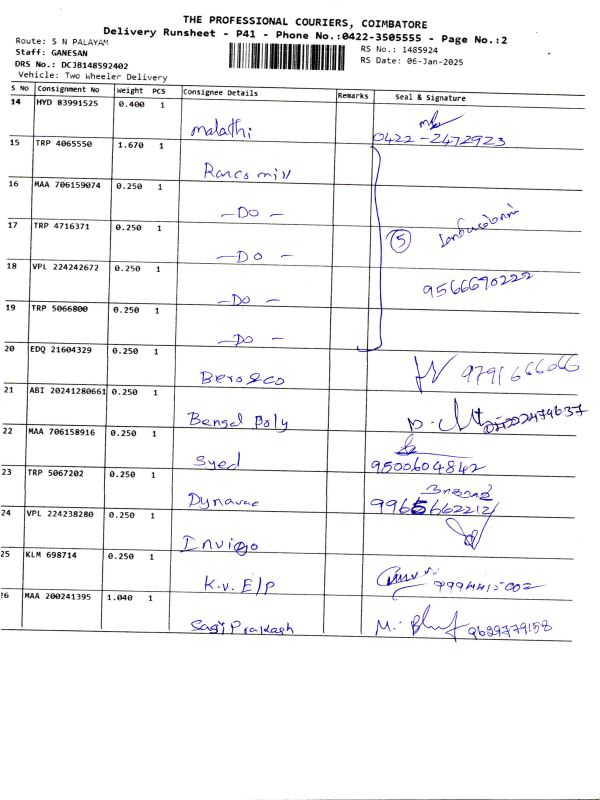 THE PROFESSIONAL COURIERS, COIMBATORE
Delivery Runsheet - P41 - Phone No.:0422-3505555 - Page No.:2
Route: S N PALAYAM
RS No.: 1485924
Staff: GANESAN
RS Date: 06-Jan-2025
DRS No.: DCJB148592402
Vehicle: Two Wheeler Delivery
S No Consignment No Weight PCS Consignee Details Remarks Seal & Signature
14 HYD 83991525 0.400 1
malathi 0422-2472923
15 TRP 4065550 1.670 1
Ranco mill
16 MAA 706159074 0.250 1
-Do-
17 TRP 4716371 0.250 1
-Do- 5
18 VPL 224242672 0.250 1
-Do- 9566670222
19 TRP 5066800 0.250 1
-Do-
20 EDQ 21604329 0.250 1
9791666066
21 ABI 20241280661 0.250 1
Bengal Poly
22 MAA 706158916 0.250 1
Syed 9500604842
23 TRP 5067202 0.250 1
Dynavac
24 VPL 224238280 0.250 1
25 KLM 698714 0.250 1
K.V. E/P 9994415002
26 MAA 200241395 1.040 1
9629779158